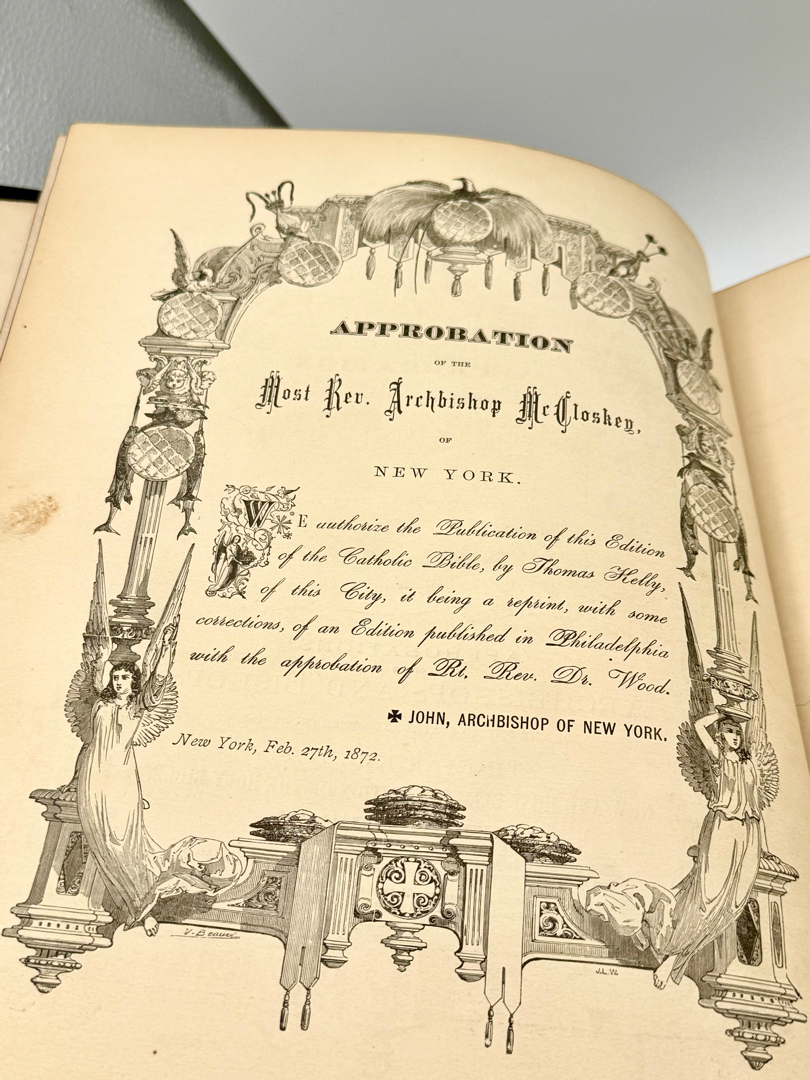 APPROBATION
OF THE
Most Rev. Archbishop McCloskey,
OF
NEW YORK.
WE authorize the Publication of this Edition
of the Catholic Bible, by Thomas Kelly,
of this City, it being a reprint, with some
corrections, of an Edition published in Philadelphia
with the approbation of Rt. Rev. Dr. Wood.
✠ JOHN, ARCHBISHOP OF NEW YORK.
New York, Feb. 27th, 1872.
J.L.W.